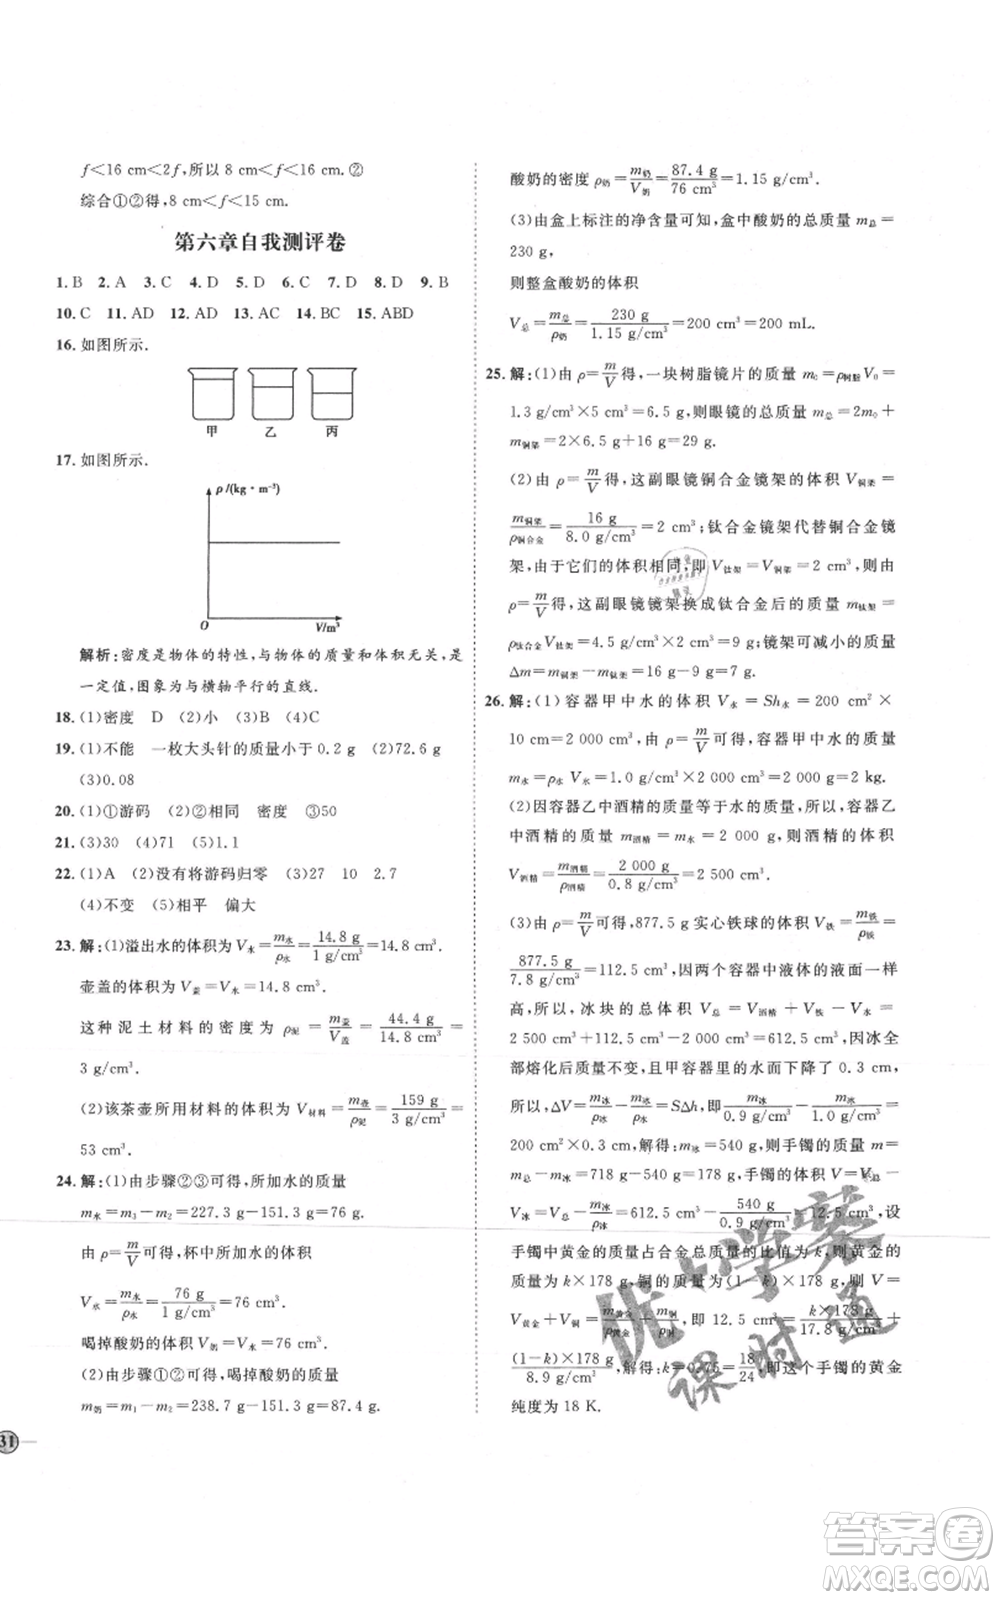 f＜16 cm＜2f,所以 8 cm＜f＜16 cm. ②
综合①②得,8 cm＜f＜15 cm.
第六章自我测评卷
1. B 2. A 3. C 4. D 5. D 6. D 7. D 8. D 9. B
10. C 11. AD 12. AD 13. AD 14. BC 15. ABD
16. 如图所示.
甲 乙 丙
17. 如图所示.
ρ/(kg·m⁻³)
O V/m³
解析:密度是物体的特性,与物体的质量和体积无关,是
一定值,图象为与横轴平行的直线.
18. (1)密度 D (2)小 (3)B (4)C
19. (1)不能 一枚大头针的质量小于0.2 g (2)72.6
(3)0.08
20. (1)①游码 (2)②相同 密度 ③50
21. (3)30 (4)71 (5)1.1
22. (1)A (2)没有将游码归零 (3)27 10 2.7
(4)不变 (5)相平 偏大
23. 解:(1)溢出水的体积为 V水=m水/ρ水=14.8 g/1 g/cm³=14.8 cm³.
壶盖的体积为 V盖=V水=14.8 cm³.
这种泥土材料的密度为 ρ泥=m盖/V盖=44.4 g/14.8 cm³=
3 g/cm³.
(2)该茶壶所用材料的体积为 V材料=m壶/ρ泥=159 g/3 g/cm³=
53 cm³.
24. 解:(1)由步骤②③可得,加水的质量
m水=m₃-m₂=227.3 g-151.3 g=76 g.
由 ρ=m/V可得,杯中所加水的体积
V水=m水/ρ水=76 g/1 g/cm³=76 cm³.
喝掉酸奶的体积 V奶=V水=76 cm³.
(2)由步骤①②可得,喝掉酸奶的质量
m奶=m₁-m₂=238.7 g-151.3 g=87.4 g.
31
酸奶的密度 ρ奶=m奶/V奶=87.4 g/76 cm³=1.15 g/cm³.
(3)由盒上标注的净含量可知,盒中酸奶的质量 m总=
230 g,
则整盒酸奶的体积
V总=m总/ρ奶=230 g/1.15 g/cm³=200 cm³=200 mL.
25. 解:(1)由 ρ=m/V得,一块树脂镜片的质量 m₀=ρ树脂 V₀=
1.3 g/cm³×5 cm³=6.5 g,则眼镜的总质量 m总=2m₀+
m铜架=2×6.5 g+16 g=29 g.
(2)由 ρ=m/V得,这副眼镜铜合金镜架的体积 V铜架=
m铜架/ρ铜合金=16 g/8.0 g/cm³=2 cm³;钛合金镜架代替铜合金镜
架,由于它们的体积相同,即 V钛架=V铜架=2 cm³,由
ρ=m/V得,这副眼镜镜架换成钛合金后的质量 m钛架=
ρ钛合金V钛架=4.5 g/cm³×2 cm³=9 g;镜架可减小的质量
Δm=m铜架-m钛架=16 g-9 g=7 g.
26. 解:(1)容器甲中水的体积 V水=Sh水=200 cm²×
10 cm=2 000 cm³,由 ρ=m/V可得,容器甲中水的质量
m水=ρ水 V水=1.0 g/cm³×2 000 cm³=2 000 g=2 kg.
(2)因容器乙中酒精的质量等于水的质量,所以,容器乙
中酒精的质量 m酒精=m水=2 000 g,则酒精的体积
V酒精=m酒精/ρ酒精=2 000 g/0.8 g/cm³=2 500 cm³.
(3)由 ρ=m/V可得,877.5 g实心铁球的体积 V铁=m铁/ρ铁=
877.5 g/7.8 g/cm³=112.5 cm³,因两个容器中液体的液面一样
高,所以,冰块的总体积 V总=V酒精+V铁-V水=
2 500 cm³+112.5 cm³-2 000 cm³=612.5 cm³,因冰全
部熔化后质量不变,且甲容器的水面下降了 0.3 cm,
所以,ΔV=m冰/ρ冰-m冰/ρ水=SΔh,即m冰/0.9 g/cm³-m冰/1.0 g/cm³=
200 cm²×0.3 cm,解得:m冰=540 g,则手镯的质量 m=
m总-m冰=718 g-540 g=178 g,手镯的体积 V=V总-
V冰=V总-m冰/ρ冰=612.5 cm³-540 g/0.9 g/cm³=12.5 cm³,设
手镯中黄金的质量占合金总质量的比值为 k,则黄金的
质量为 k×178 g,铜的质量为(1-k)×178 g,则 V=
V黄金+V铜=m黄金/ρ黄金+m铜/ρ铜,即 12.5 cm³=k×178 g/17.8 g/cm³+
(1-k)×178 g/8.9 g/cm³,解得:k=0.75=18/24,即这个手镯的黄金
纯度为 18 K.
优+学案
课时通
答案卷
MXQE.COM